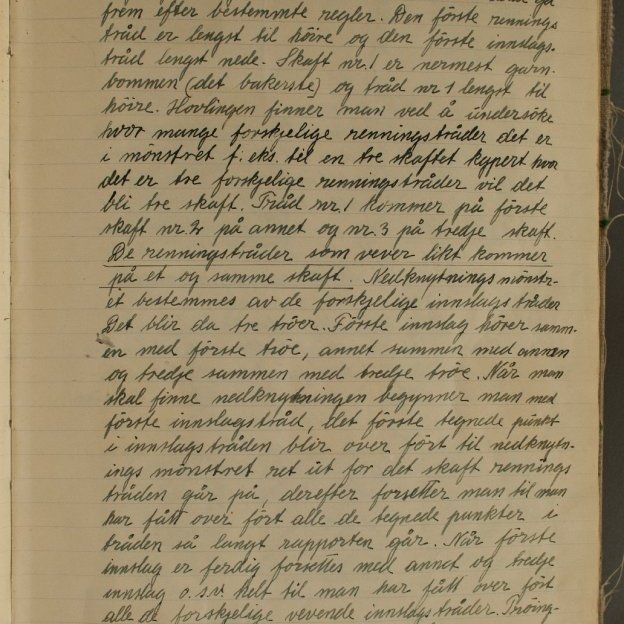 frem efter bestemmte regler. Den förste rennings-
tråd er lengst til höire og den förste innslags-
tråd lengst nede. Skaft nr. 1 er nermest garn-
bommen (det bakerste) og tråd nr 1 lengst til
höire. Hovlingen finner man ved å undersöke
hvor mange forskjelige renningstråder det er
i mönstret f. eks. til en tre skaftet kypert hvor
det er tre forskjelige renningstråder vil det
bli tre skaft. Tråd nr. 1 kommer på förste
skaft nr. 2 på annet og nr. 3 på tredje skaft.
De renningstråder som vever likt kommer
på et og samme skaft. Nedknytnings mönstr-
et bestemmes av de forskjelige innslagstråder
Det blir da tre tröer. Förste innslag hörer samm-
en med förste tröe, annet sammen med annen
og tredje sammen med tredje tröe. Når man
skal finne nedknytningen begynner man med
förste innslagstråd, det förste tegnede punkt
i innslagstråden blir over fört til nedknytn-
ings mönstret ret ut for det skaft rennings
tråden går på, derefter forsetter man til man
har fått over fört alle de tegnede punkter i
tråden så langt rapporten går. Når förste
innslag er ferdig forsettes med annet og tredje
innslag o.s.v. helt til man har fått over fört
alle de forskjelige vevende innslagstråder. Tröing-